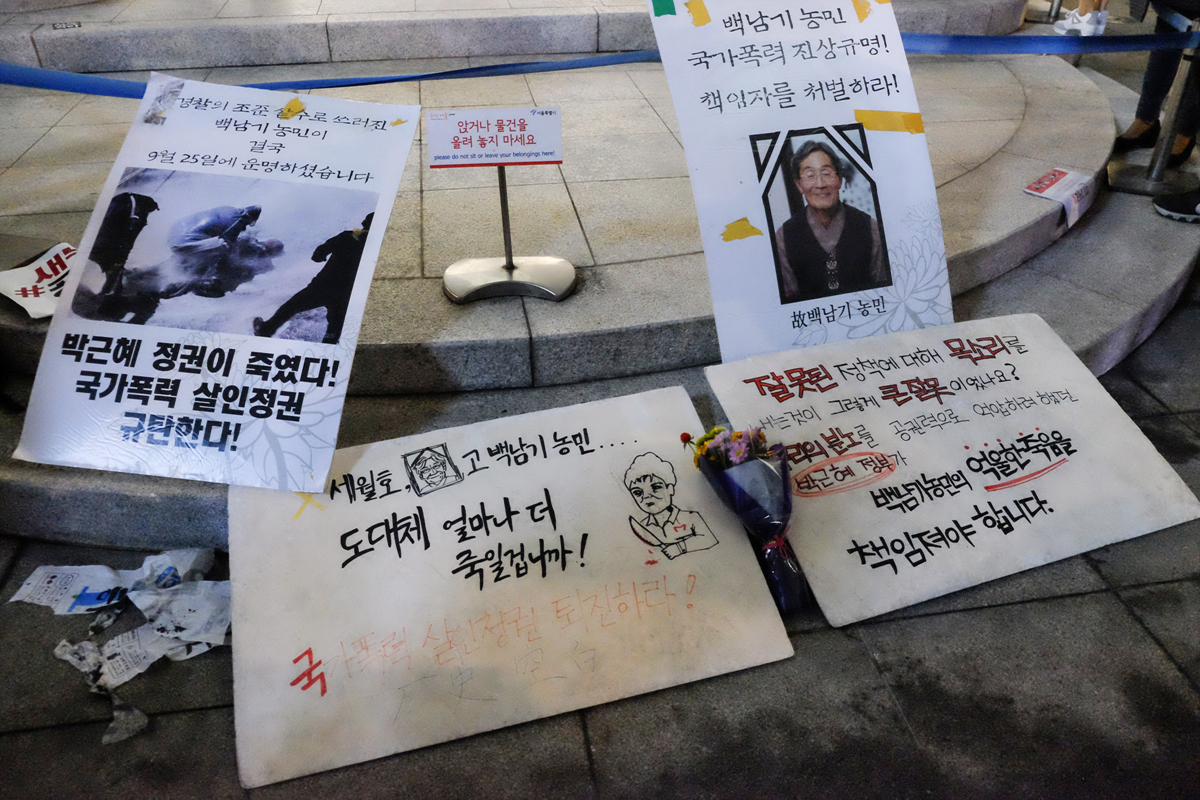 경찰의 조준 살수로 쓰러진
백남기 농민이
결국
9월 25일에 운명하셨습니다
박근혜 정권이 죽였다!
국가폭력 살인정권
규탄한다!
앉거나 물건을
올려 놓지 마세요
please do not sit or leave your belongings here!
서울특별시
백남기 농민
국가폭력 진상규명!
책임자를 처벌하라!
故백남기 농민
세월호, 고 백남기 농민.....
도대체 얼마나 더
죽일겁니까!
국가폭력 살인정권 퇴진하라!
잘못된 정책에 대해 목소리를
내는것이 그렇게 큰잘못이었나요?
분노를 공권력으로 억압하려 했던
박근혜 정부가
백남기농민의 억울한죽음을
책임져야 합니다.